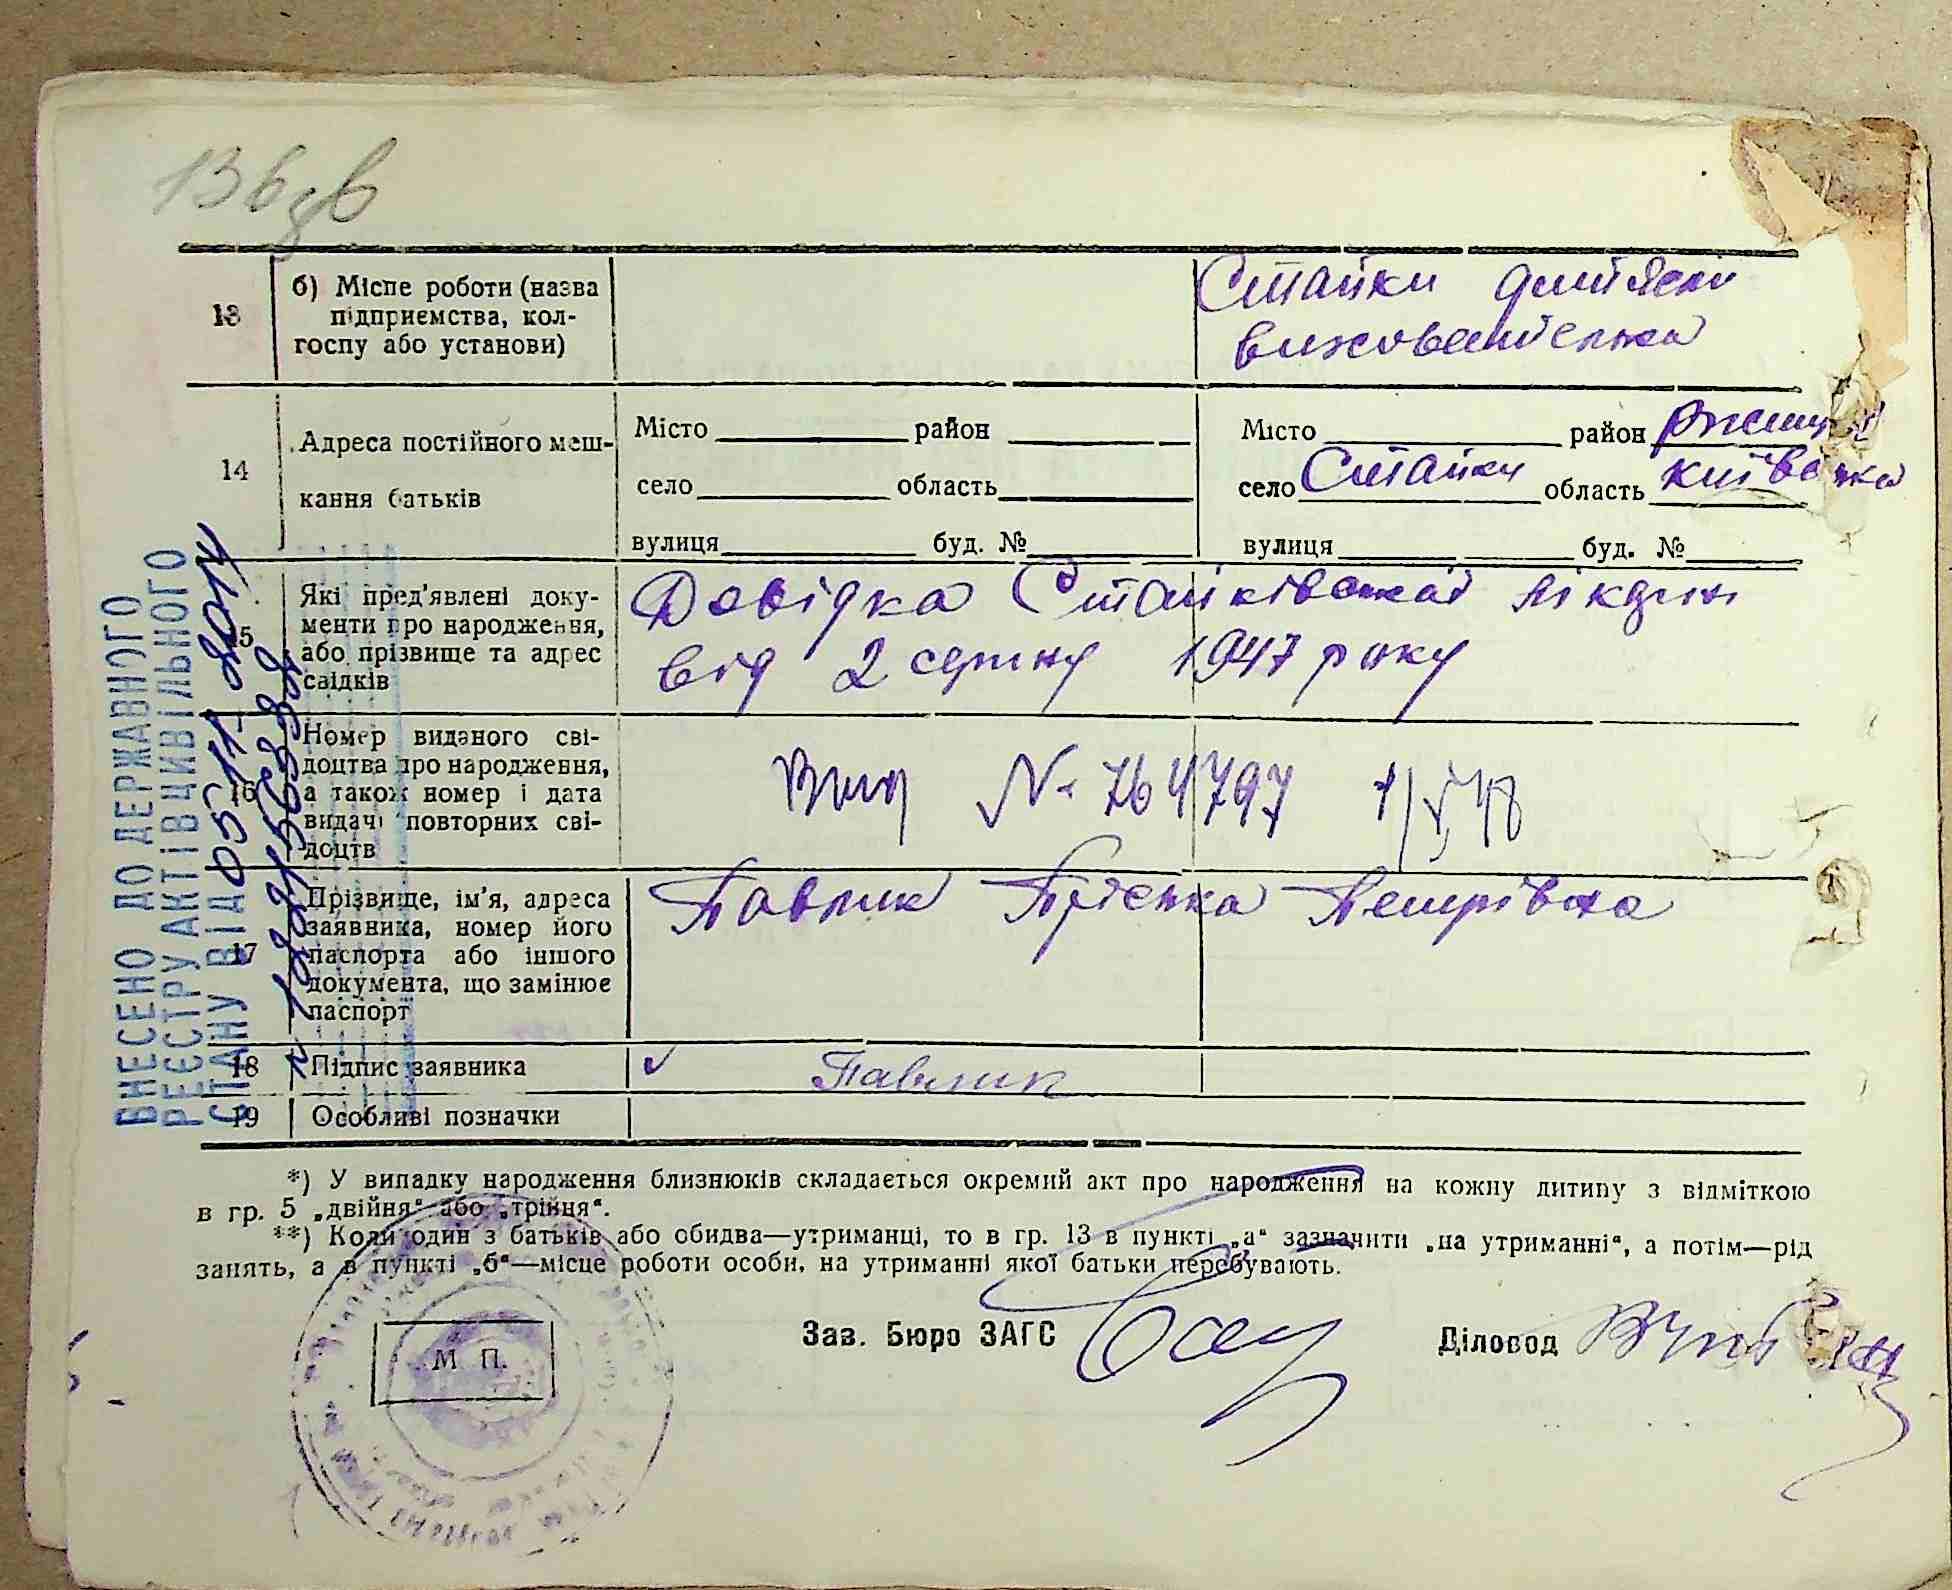 13 б) Місце роботи (назва підприємства, кол-
госпу або установи)
Стайки дитяслі
вихователька
14 Адреса постійного меш-
кання батьків
Місто район
село область
вулиця буд. №
Місто район
село Стайки область київська
вулиця буд. №
15 Які пред'явлені доку-
менти про народження,
або прізвище та адрес
свідків
Довідка Стайківської лікарні
від 2 серпну 1947 року
16 Номер виданого сві-
доцтва про народження,
а також номер і дата
видачі повторних сві-
доцтв
№ 764797
17 Прізвище, ім'я, адреса
заявника, номер його
паспорта або іншого
документа, що замінює
паспорт
Павлик Петрівна
18 Підпис заявника
Павлик
19 Особливі позначки
ВНЕСЕНО ДО ДЕРЖАВНОГО
РЕЄСТРУ АКТІВ ЦИВІЛЬНОГО
СТАНУ ВІД
*) У випадку народження близнюків складається окремий акт про народження на кожну дитину з відміткою
в гр. 5 „двійня“ або „трійня“.
**) Коли один з батьків або обидва—утриманці, то в гр. 13 в пункті „а“ зазначити „на утриманні“, а потім—рід
занять, а в пункті „б“—місце роботи особи, на утриманні якої батьки перебувають.
М. П.
Зав. Бюро ЗАГС
Діловод